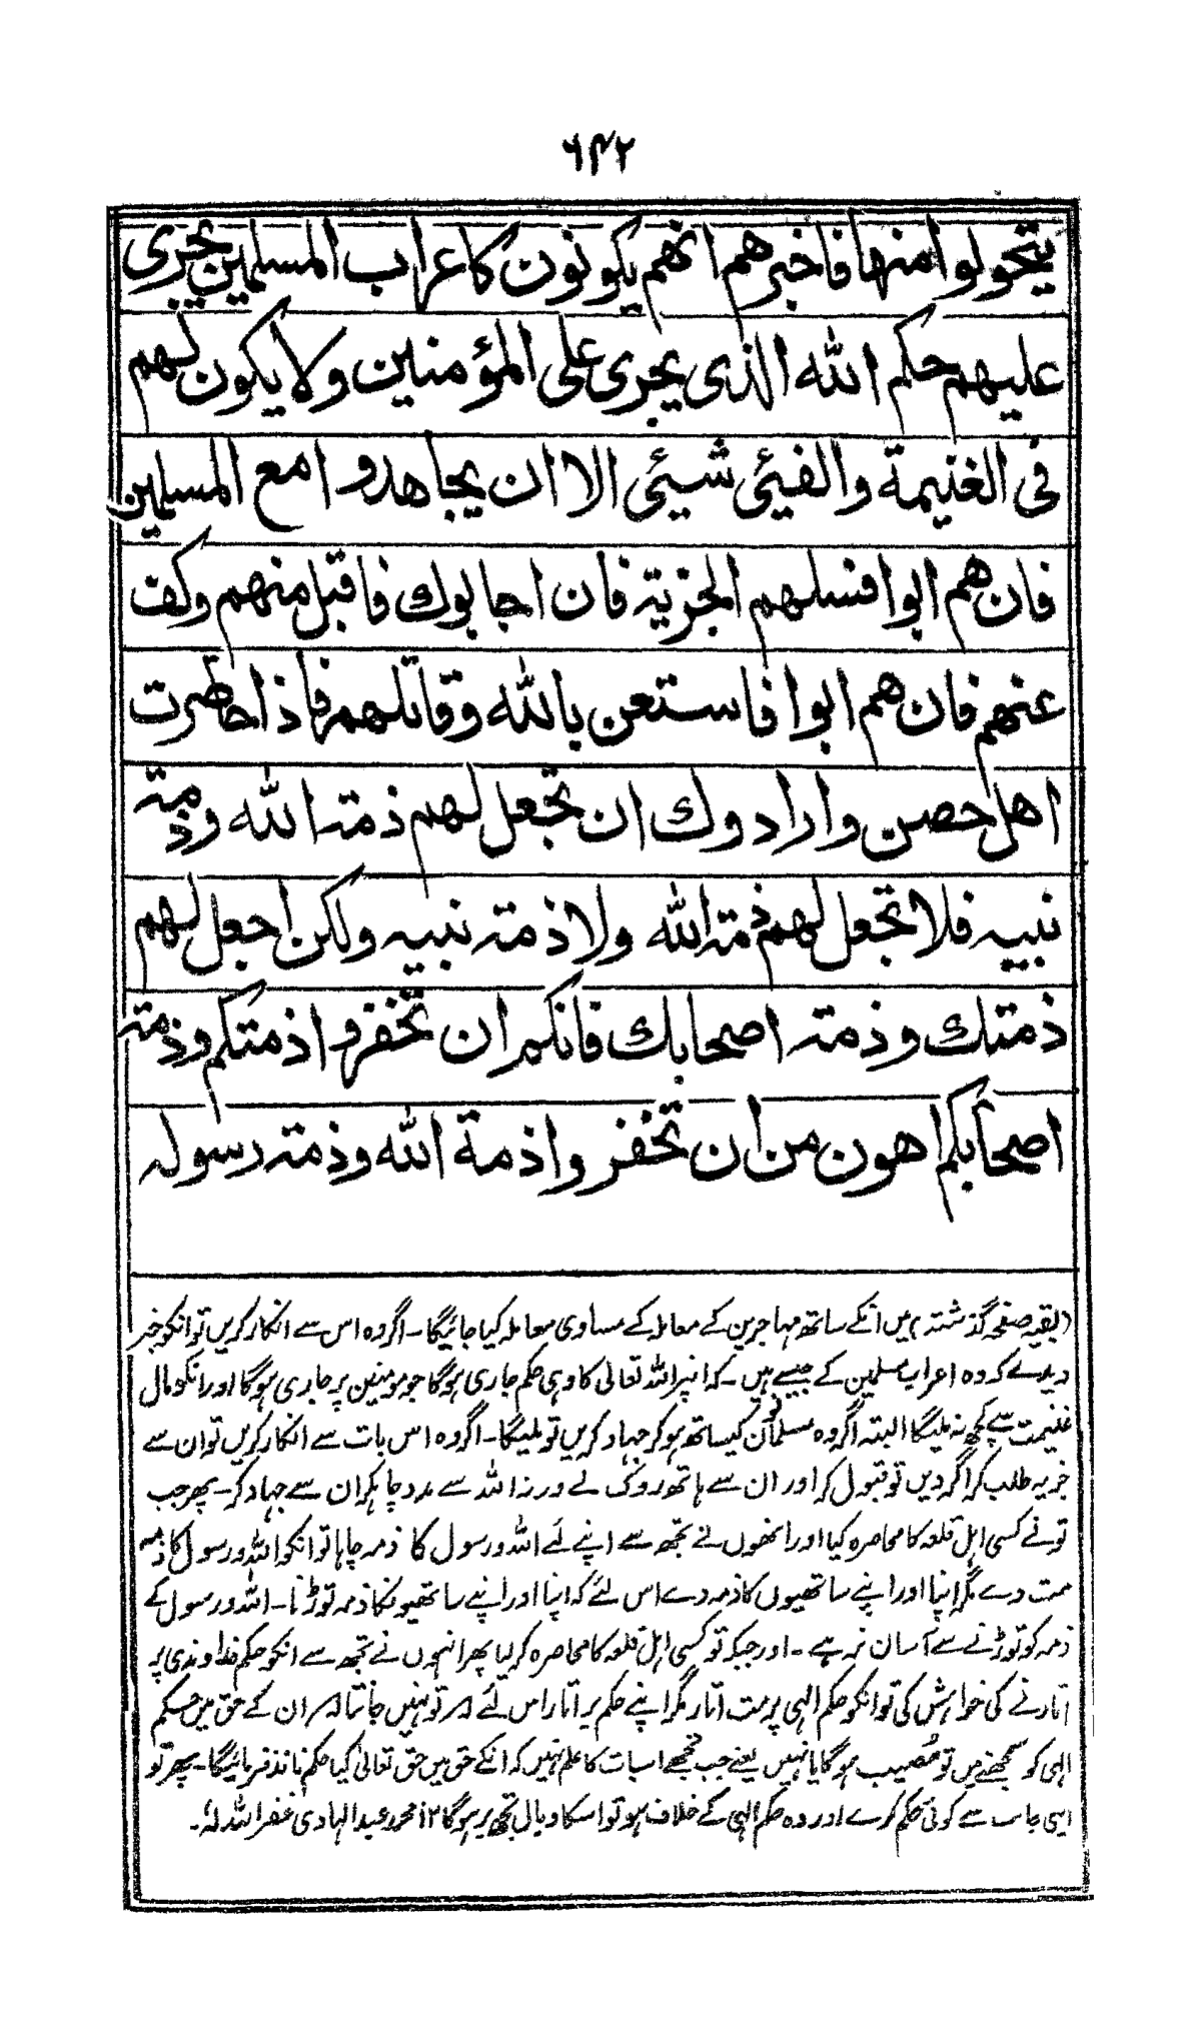 ۶۴۲
يتحولوا منها فاخبرهم انهم يكونون كاعراب المسلمين يجرى
عليهم حكم الله الذى يجرى على المؤمنين ولا يكون لهم
فى الغنيمة والفيئى شيئى الا ان يجاهدوا مع المسلمين
فان هم ابوا فسلهم الجزية فان اجابوك فاقبل منهم وكف
عنهم فان هم ابوا فاستعن بالله وقاتلهم فاذا حاصرت
اهل حصن وارادوك ان تجعل لهم ذمته الله وذمته
نبيه فلا تجعل لهم ذمته الله ولا ذمته نبيه ولكن اجعل لهم
ذمتك وذمته اصحابك فانكم ان تخفروا ذمتكم وذمته
اصحابكم اهون من ان تخفروا ذمة الله وذمته رسوله
(بقیہ صفحہ گذشتہ) میں انکے ساتھ مہاجرین کے معاملہ کے مساوی معاملہ کیا جائیگا۔ اگر وہ اس سے انکار کریں تو انکو خبر
دیدے کہ وہ اعراب مسلمین کے جیسے ہیں۔ کہ انپر اللہ تعالی کا وہی حکم جاری ہوگا جو مومنین پر جاری ہوگا اور انکو مال
غنیمت سے کچھ نہ ملیگا البتہ اگر وہ مسلمانوں کیساتھ ہوکر جہاد کریں تو ملیگا۔ اگر وہ اس بات سے انکار کریں تو ان سے
جزیہ طلب کر اگر دیں تو قبول کر اور ان سے ہاتھ روک لے ورنہ اللہ سے مدد چاہکر ان سے جہاد کر۔ پھر جب
تو نے کسی اہل قلعہ کا محاصرہ کیا اور انھوں نے تجھ سے اپنے لئے اللہ و رسول کا ذمہ چاہا تو انکو اللہ و رسول کا ذمہ
مت دے مگر اپنا اور اپنے ساتھیوں کا ذمہ دے اس لئے کہ اپنا اور اپنے ساتھیونکا ذمہ توڑنا۔ اللہ و رسول کے
ذمہ کو توڑنے سے آسان تر ہے۔ اور جبکہ تو کسی اہل قلعہ کا محاصرہ کرلیا پھر انہوں نے تجھ سے انکو حکم خداوندی پر
اتارنے کی خواہش کی تو انکو حکم الہی پر مت اتار مگر اپنے حکم پر اتار اس لئے کہ تو نہیں جانتا کہ ان کے حق میں حکم
الہی کو سمجھنے میں تو مُصیب ہوگا یا نہیں یعنے جب تجھے اسبات کا علم نہیں کہ انکے حق میں حق تعالیٰ کیا حکم نافذ فرمائیگا۔ پھر تو
اپنی جانب سے کوئی حکم کرے اور وہ حکم الہی کے خلاف ہو تو اسکا وبال تجھ پر ہوگا ۱۲ محمد عبد الہادی غفر اللہ لہٗ۔